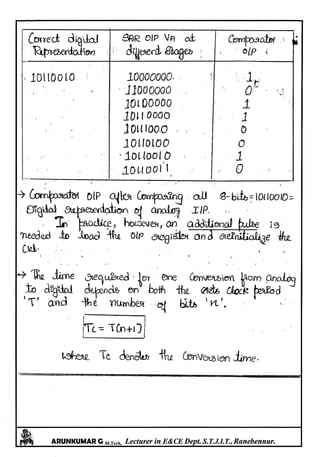 Correct digital SAR O/P VA at Comparator
Representation different Stages O/P
10110010 10000000 1
11000000 0
10100000 1
10110000 1
10111000 0
10110100 0
10110010 1
10110011 0
→ Comparator O/P after Comparing all 8-bits = 10110010 =
Digital representation of analog I/P.
In practice, however, an additional pulse is
needed to load the O/P register and reinitialize the
Ckt.
→ The time required for one Conversion from analog
to digital depends on both the clock period
'T' and the number of bits 'n'.
Tc = T(n+1)
where Tc denotes the Conversion time.
ARUNKUMAR G M.Tech, Lecturer in E&CE Dept. S.T.J.I.T., Ranebennur.